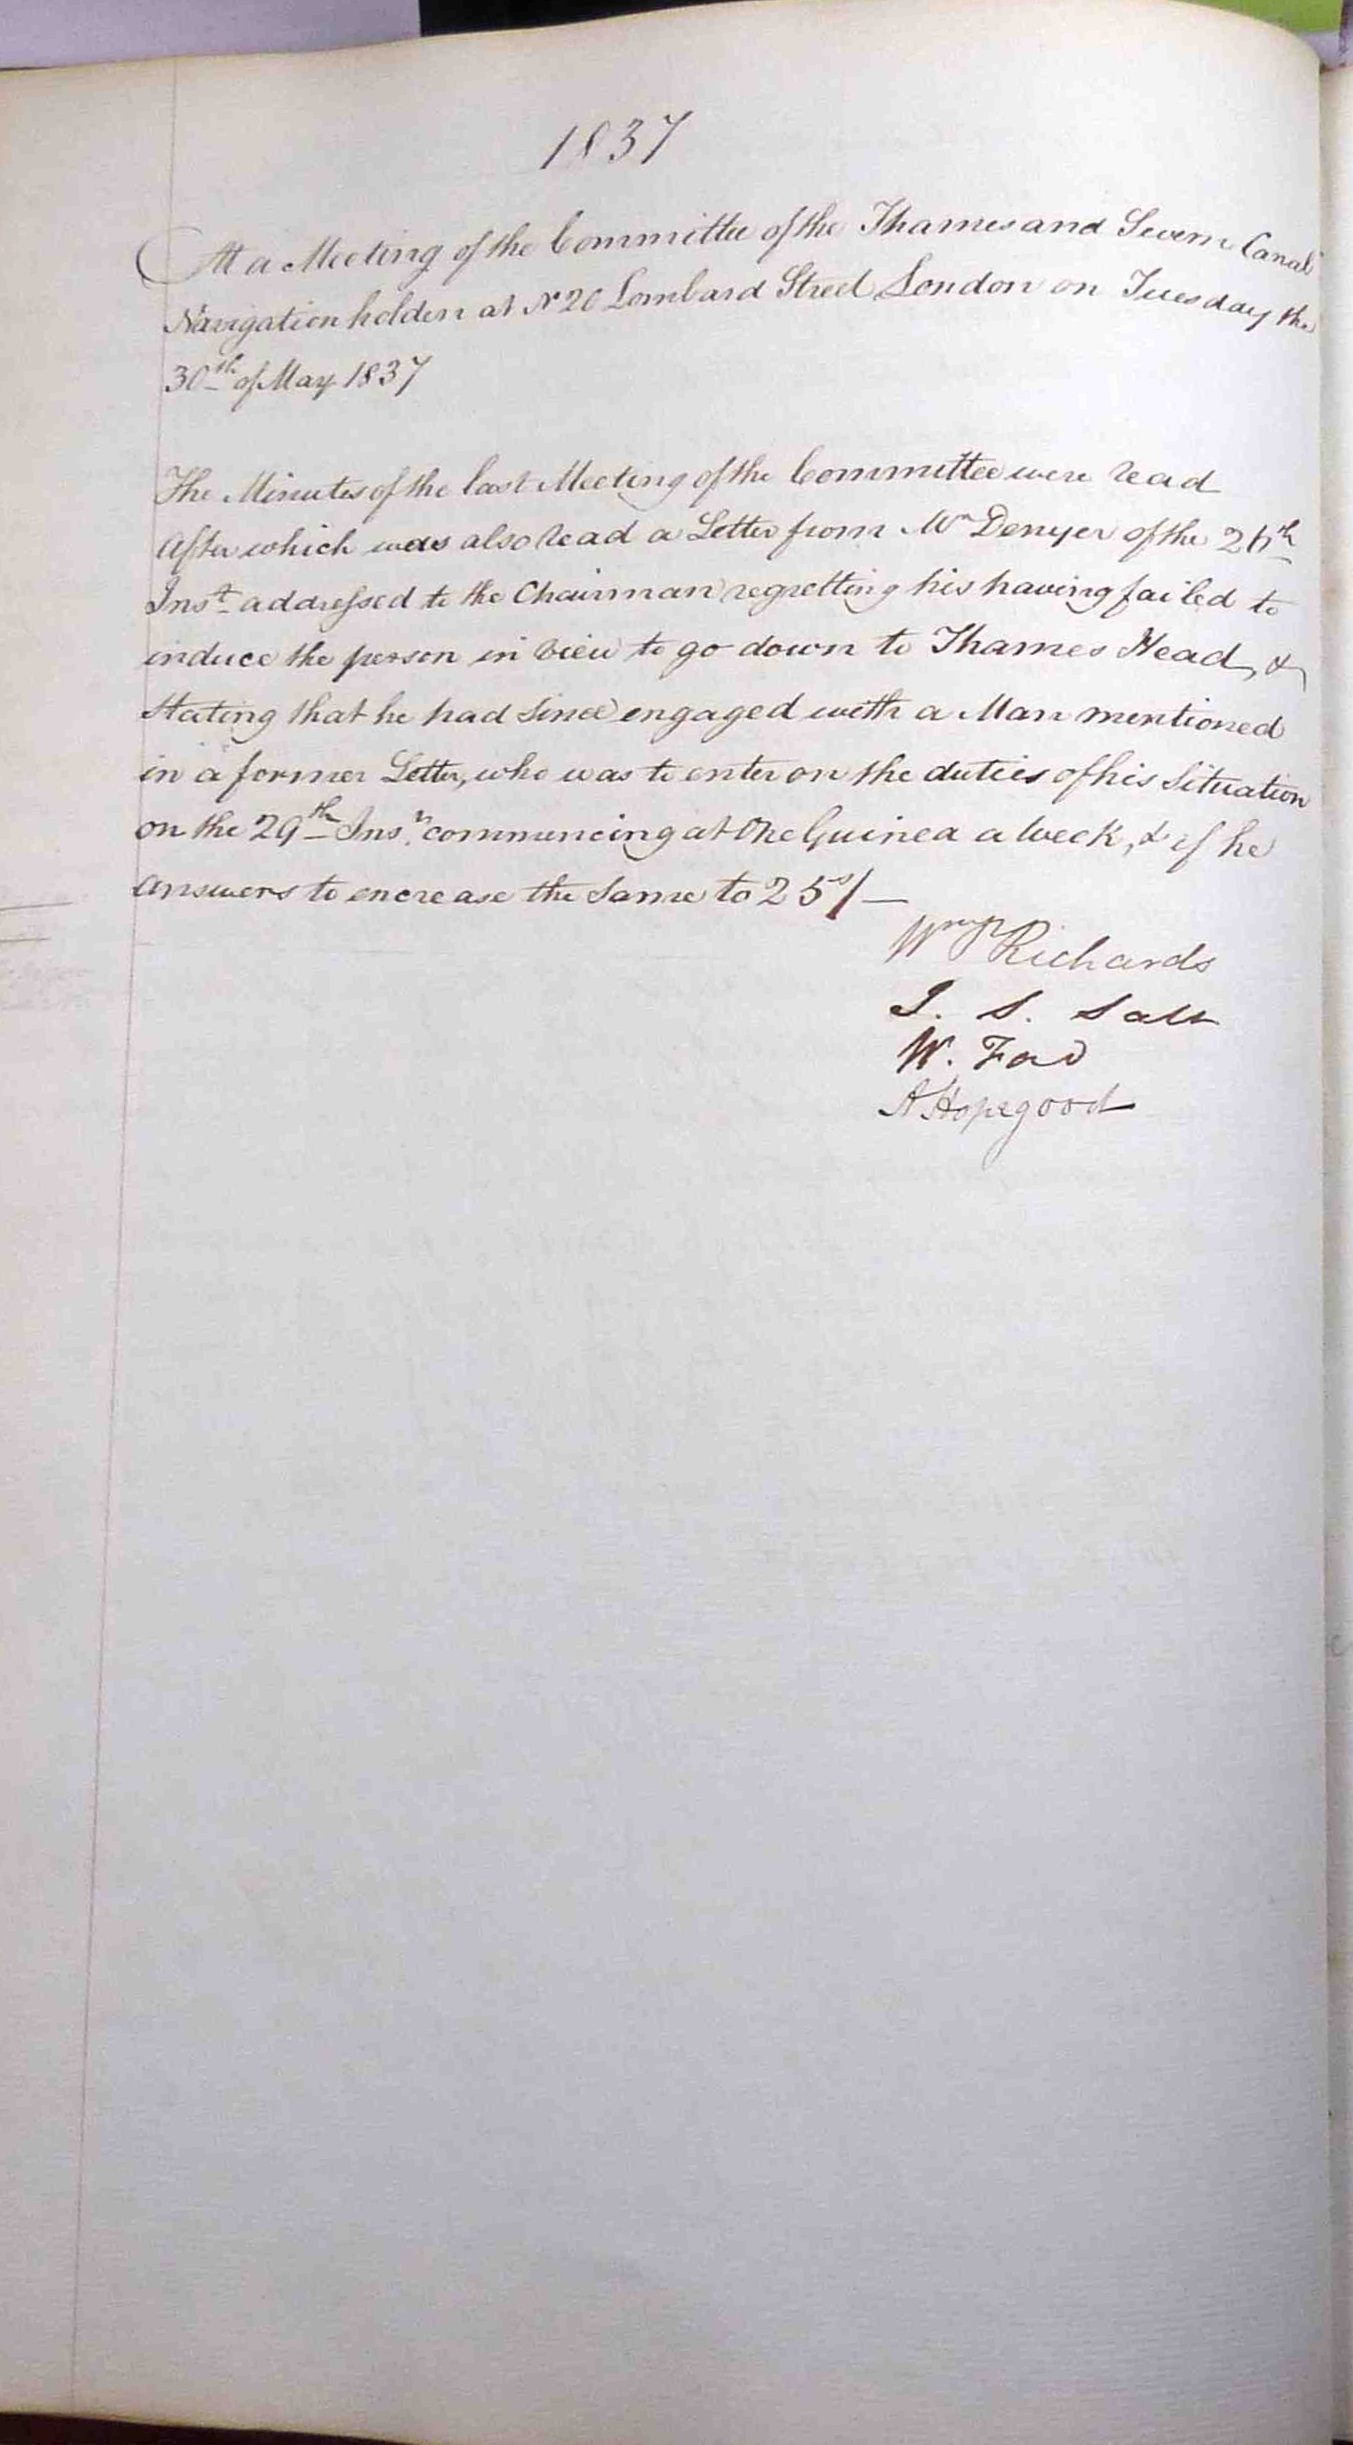 1837
At a Meeting of the Committee of the Thames and Severn Canal
Navigation holden at No 20 Lombard Street London on Tuesday the
30th of May 1837
The Minutes of the last Meeting of the Committee were read
After which was also read a Letter from Mr Denyer of the 26th
Inst addressed to the Chairman regretting his having failed to
induce the person in view to go down to Thames Head, &
stating that he had since engaged with a Man mentioned
in a former Letter, who was to enter on the duties of his Situation
on the 29th Inst commencing at One Guinea a Week, & if he
answers to encrease the same to 25s/-
Richards
J. S. Salt
W. Ford
A Hopegood